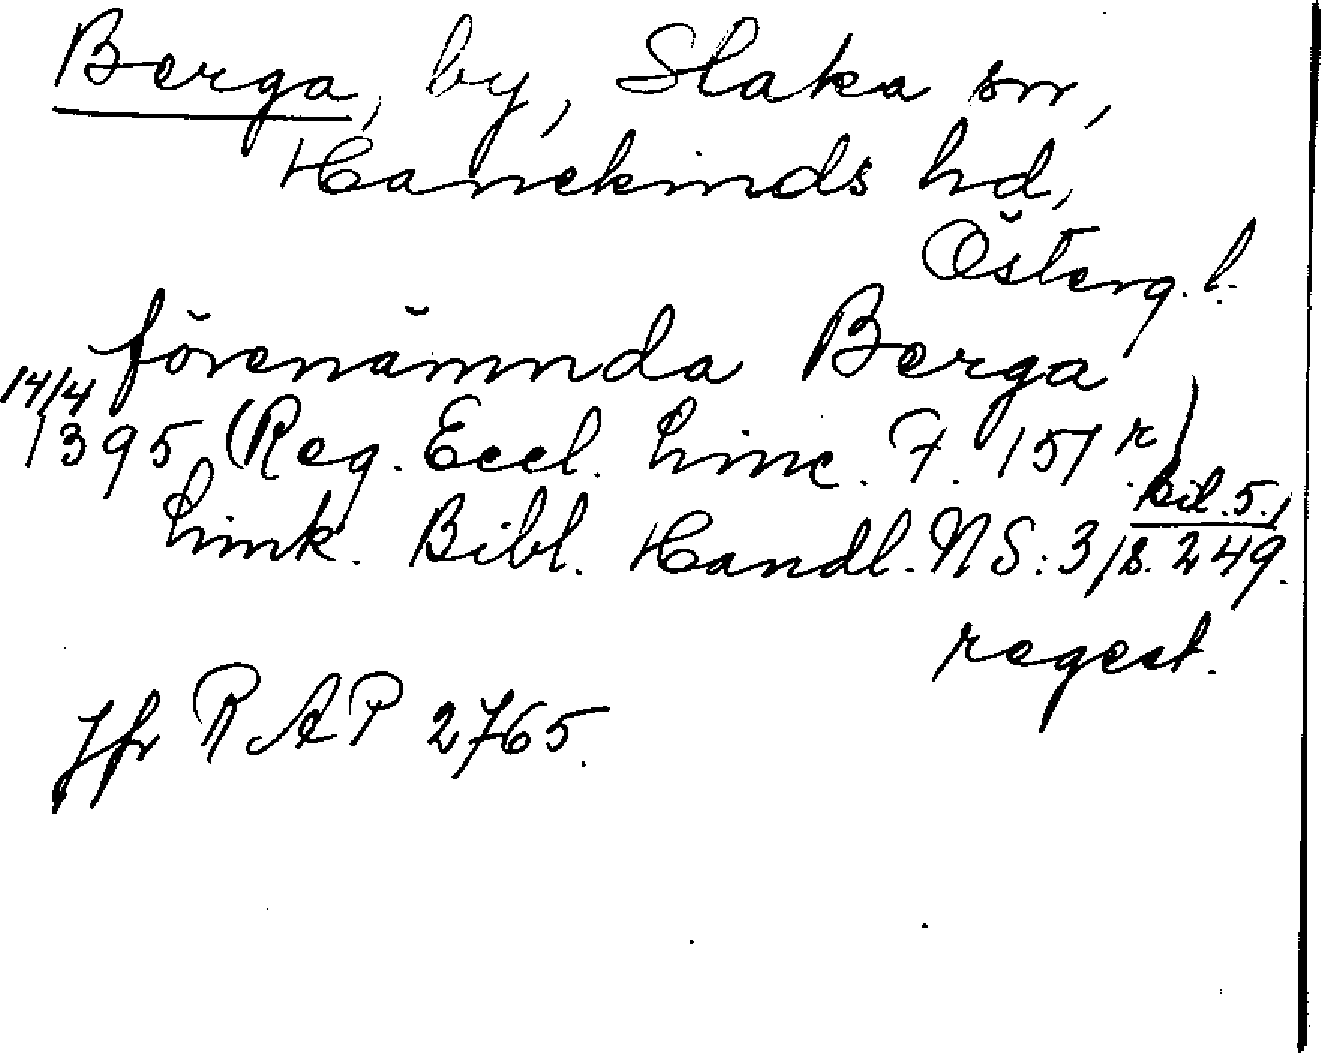 Berga, by, Slaka sn,
Hanekinds hd,
Österg.l.
förenämnda Berga
14/4 1395 (Reg. Eccl. Linc. F. 151 r)
Link. Bibl. Handl. NS: 3, bil. 5, s. 249.
regest.
Jfr RAP 2765.